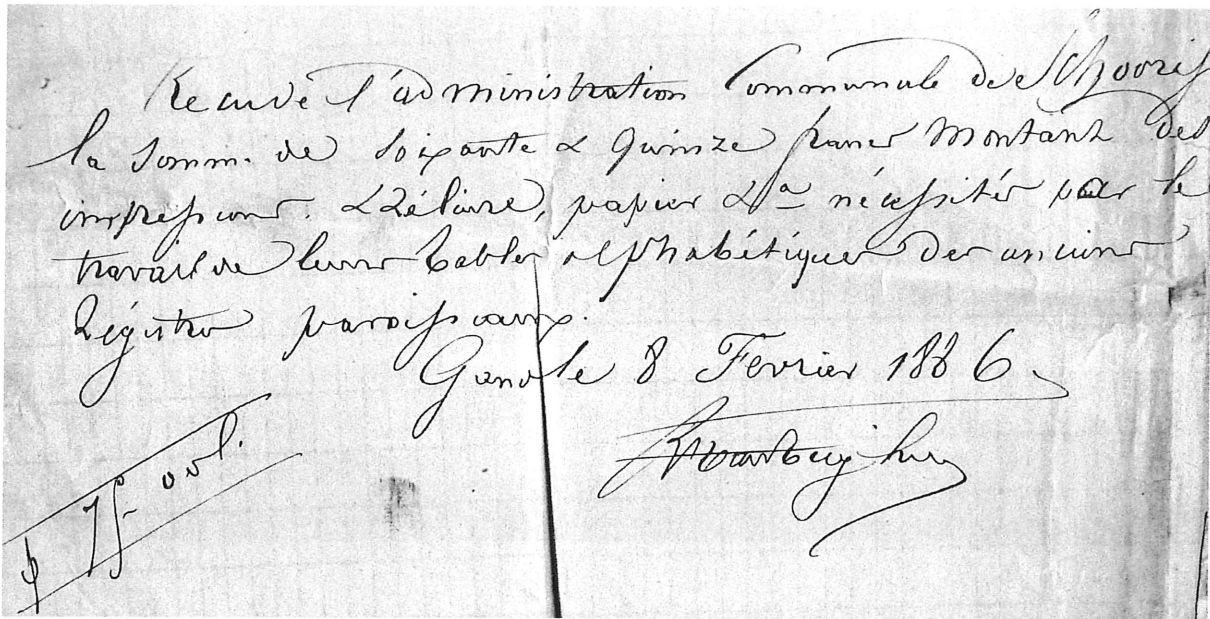 Recu de l'administration Communale de
la Somm. de Soixante & Quinze francs Montant des
impressions. & Réliure, papier &a nécessités par le
travail de leurs tables alphabétiques des anciens
Régistres paroissiaux.
Gand le 8 Fevrier 1886
75-00